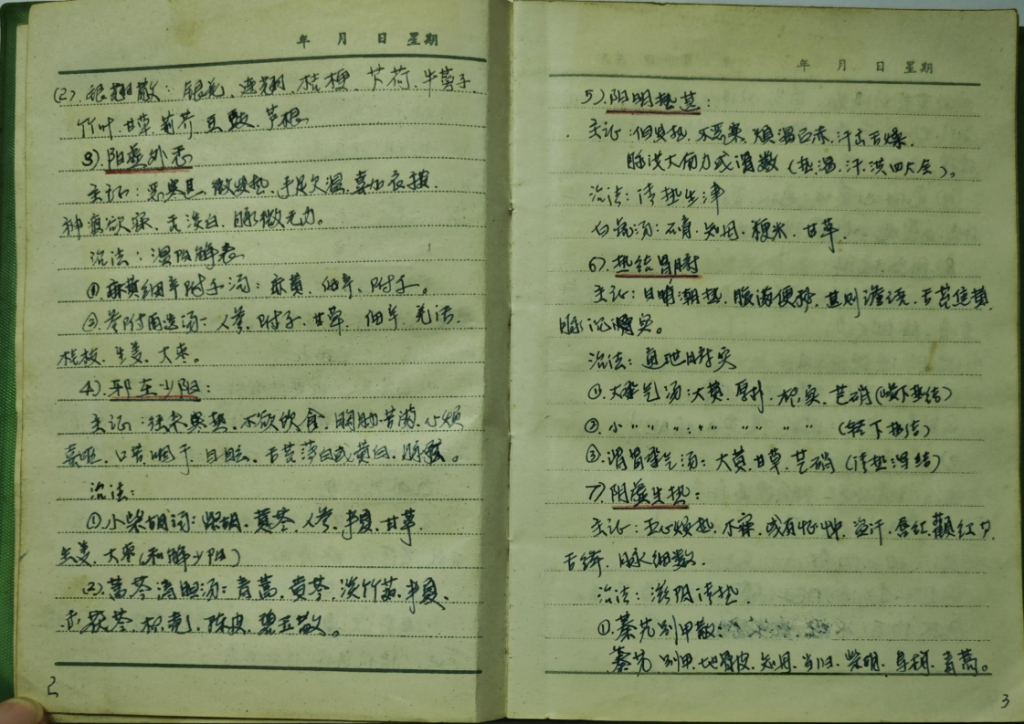 年 月 日 星期
(2). 银翘散：银花、连翘、桔梗、芥荷、牛蒡子
竹叶、甘草、荆芥、豆豉、芦根
3). 阳虚外感
主证：恶寒甚、微发热、手足欠温、喜加衣被、
神疲欲寐、舌淡白、脉微无力。
治法：温阳解表
①麻黄细辛附子汤：麻黄、细辛、附子。
②参附再造汤：人参、附子、甘草、细辛、羌活、
桂枝、生姜、大枣。
4). 邪在少阳：
主证：往来寒热、不欲饮食、胸胁苦满、心烦
喜呕、口苦咽干、目眩、舌苔薄白或黄白、脉弦。
治法：
①小柴胡汤：柴胡、黄芩、人参、半夏、甘草、
生姜、大枣(和解少阳)
(2). 蒿芩清胆汤：青蒿、黄芩、淡竹茹、半夏、
赤茯苓、枳壳、陈皮、碧玉散。
2
年 月 日 星期
5). 阳明热甚：
主证：但发热、不恶寒、烦渴面赤、汗出舌燥、
脉洪大有力或滑数(热、渴、汗、洪四大症)。
治法：清热生津
白虎汤：石膏、知母、粳米、甘草。
6). 热结胃腑
主证：日晡潮热、腹满便秘、甚则谵语、舌苔焦黄
脉沉实。
治法：通地胃实
①. 大承气汤：大黄、厚朴、枳实、芒硝(峻下热结)
②. 小 〃 〃：〃 〃 〃 〃 (轻下热结)
③. 调胃承气汤：大黄、甘草、芒硝(清热润结)
7). 阴虚生热：
主证：五心烦热、不寐、或有怔忡、盗汗、唇红、颧红、
舌绛、脉细数。
治法：滋阴清热、
①. 秦艽别甲散：
秦艽、别甲、地骨皮、知母、当归、柴胡、乌梅、青蒿。
3